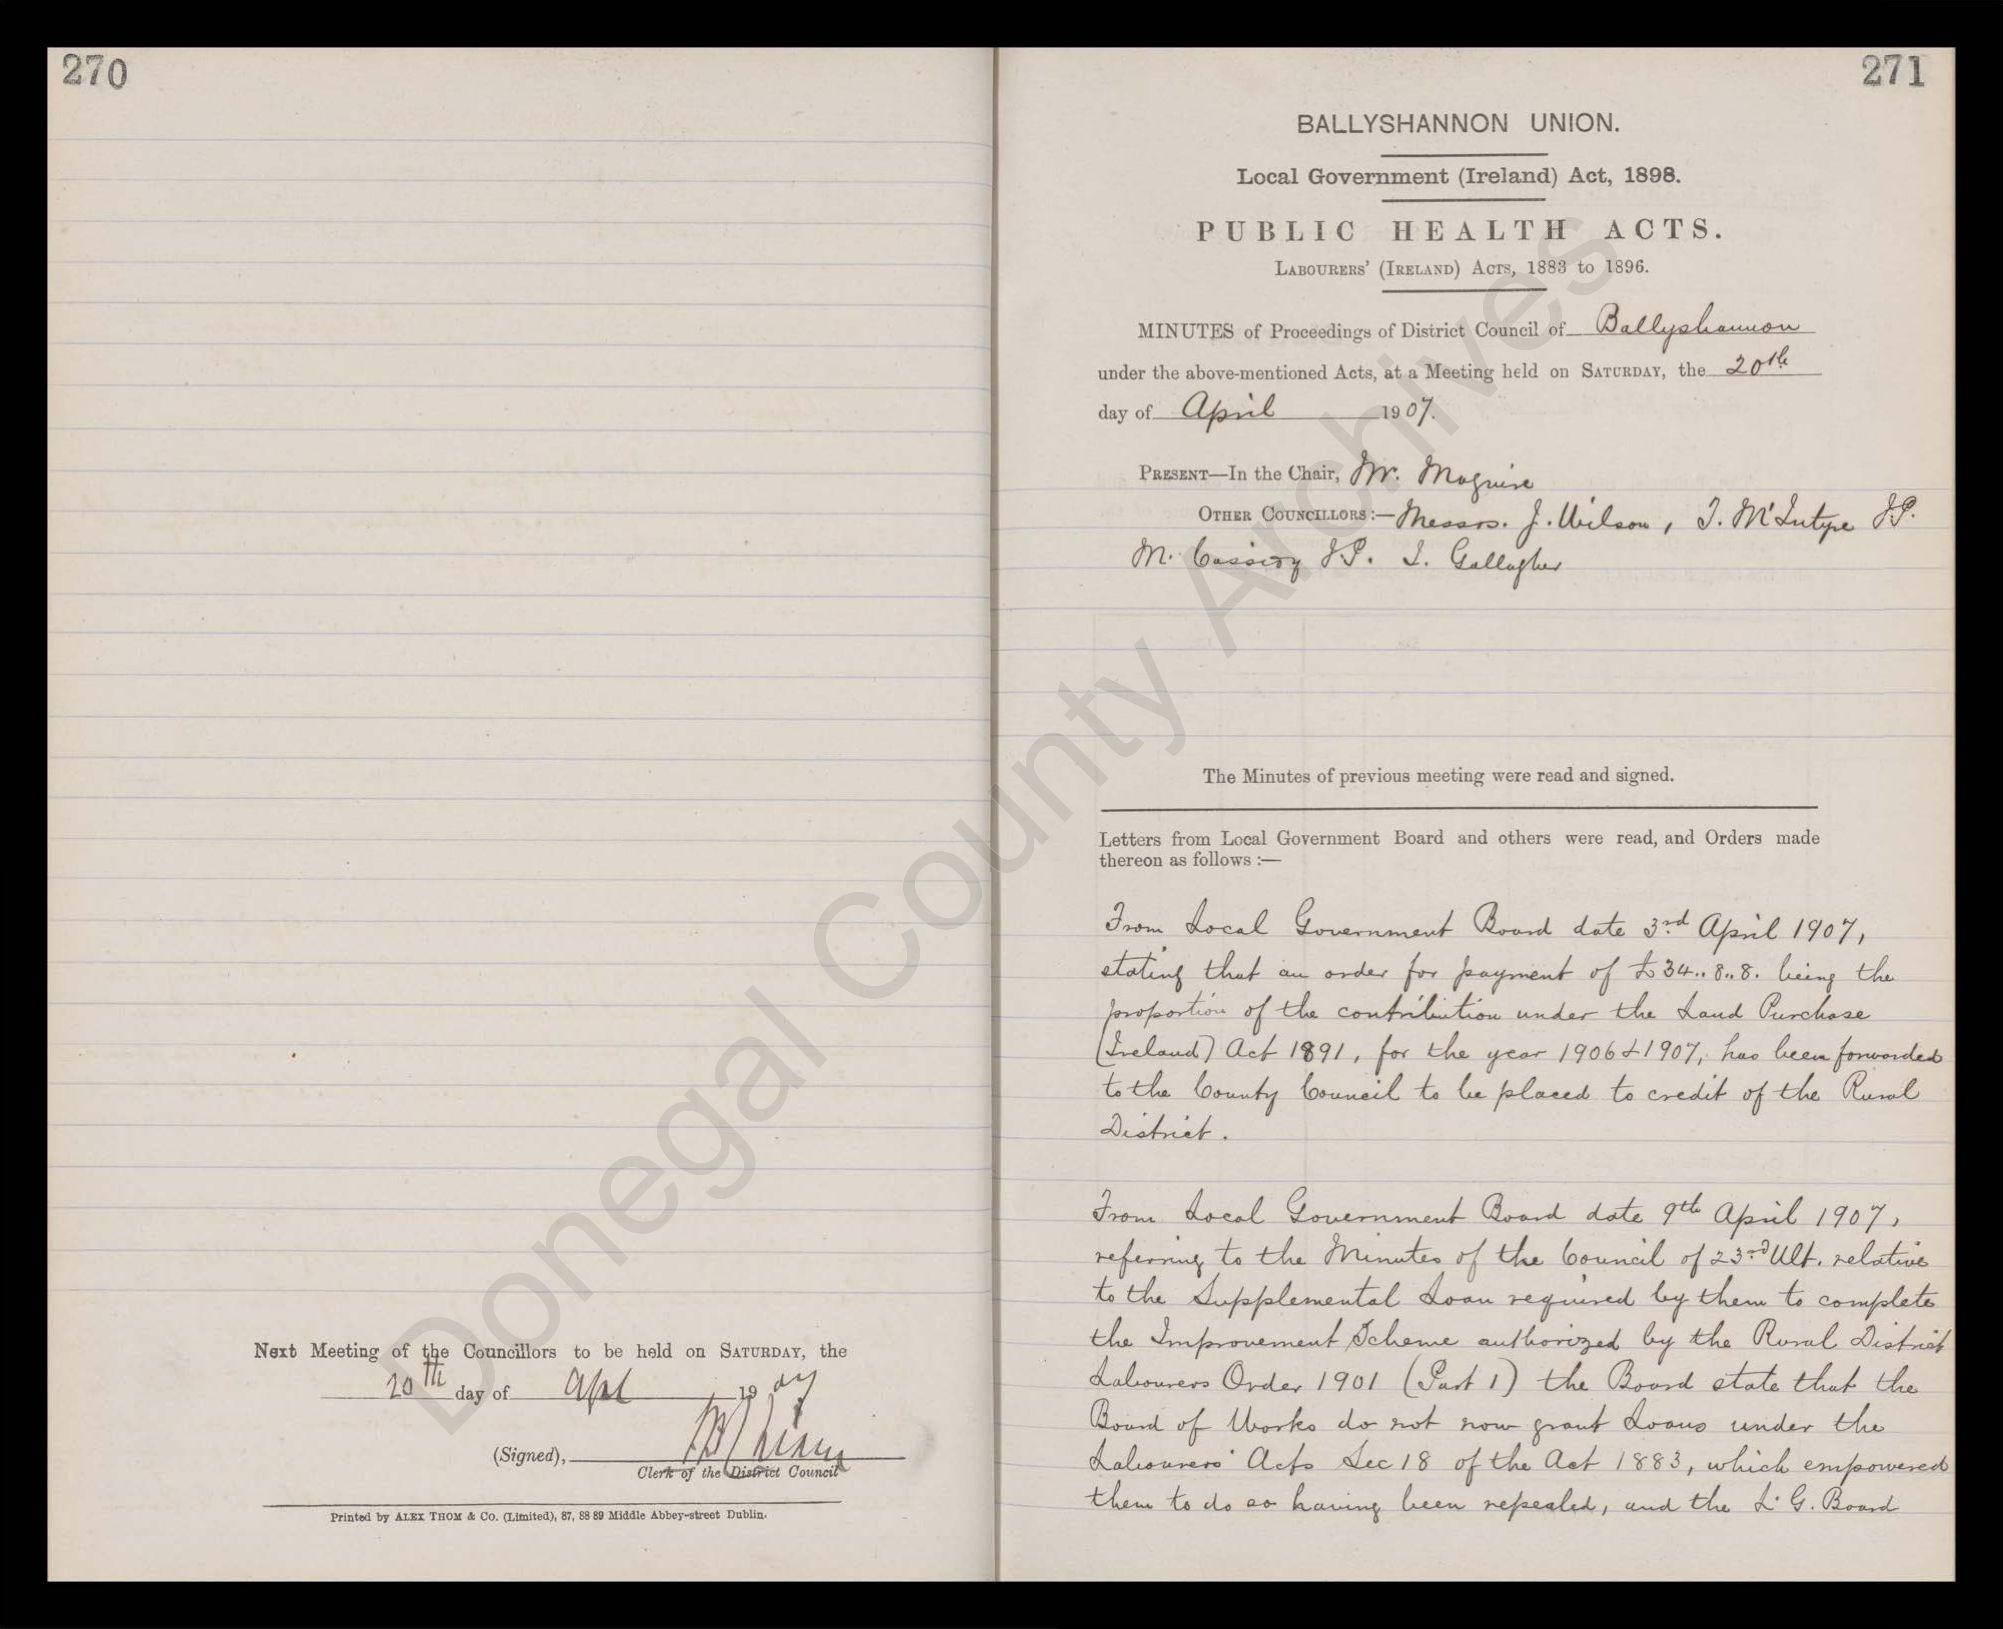 270
Next Meeting of the Councillors to be held on SATURDAY, the
20th day of Apl 1907
(Signed),
Clerk of the District Council
Printed by ALEX THOM & CO. (Limited), 87, 88 89 Middle Abbey-street Dublin.
271
BALLYSHANNON UNION.
Local Government (Ireland) Act, 1898.
PUBLIC HEALTH ACTS.
LABOURERS' (IRELAND) ACTS, 1883 to 1896.
MINUTES of Proceedings of District Council of Ballyshannon
under the above-mentioned Acts, at a Meeting held on SATURDAY, the 20th
day of April 1907.
PRESENT—In the Chair, Mr. Maguire
OTHER COUNCILLORS:—Messrs. J. Wilson, T. McIntyre J.P.
M. Cassidy J.P. T. Gallagher
The Minutes of previous meeting were read and signed.
Letters from Local Government Board and others were read, and Orders made
thereon as follows :—
From Local Government Board date 3rd April 1907,
stating that an order for payment of £34..8..8. being the
proportion of the contribution under the Land Purchase
(Ireland) Act 1891, for the year 1906 & 1907, has been forwarded
to the County Council to be placed to credit of the Rural
District.
From Local Government Board date 9th April 1907,
referring to the Minutes of the Council of 23rd Ult. relative
to the Supplemental Loan required by them to complete
the Improvement Scheme authorized by the Rural District
Labourers Order 1901 (Part 1) the Board state that the
Board of Works do not now grant Loans under the
Labourers' Acts Sec 18 of the Act 1883, which empowered
them to do so having been repealed, and the L. G. Board
Donegal County Archives